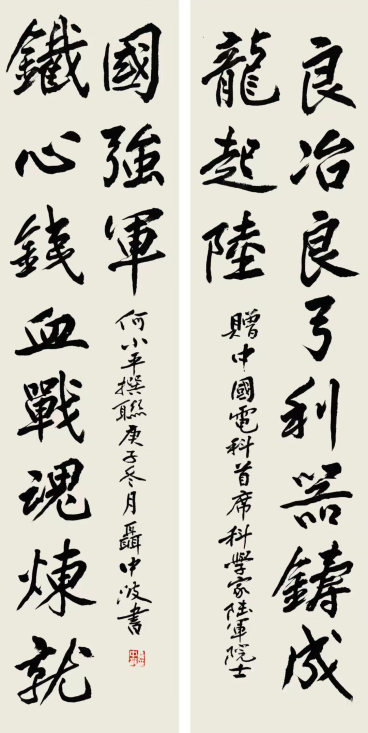 良冶良弓利器鑄成
龍起陸
贈中國電科首席科學家陸軍院士
鐵心鐵血戰魂煉就
國強軍
何小平撰聯庚子冬月聶中波書